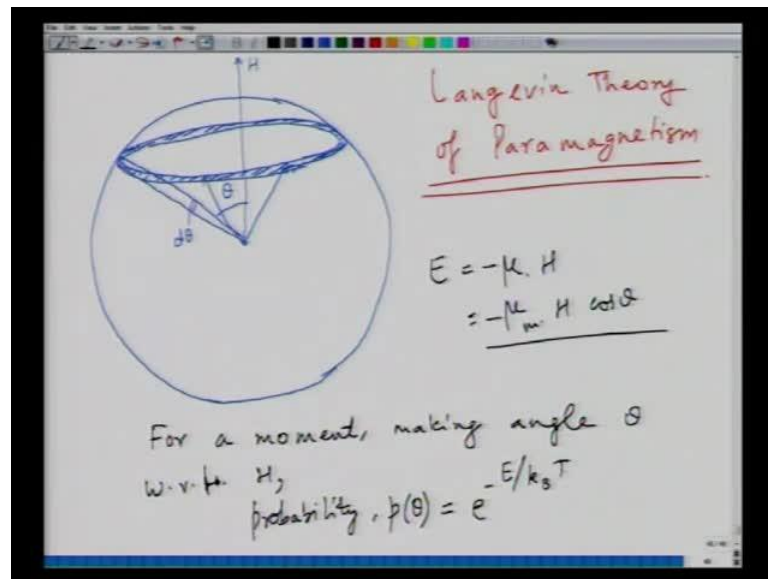 H
Langevin Theory
of Paramagnetism
θ
dθ
E = -μ. H
= -μm. H cosθ
For a moment, making angle θ
w.r.t. H,
probability, p(θ) = e^-E/kBT